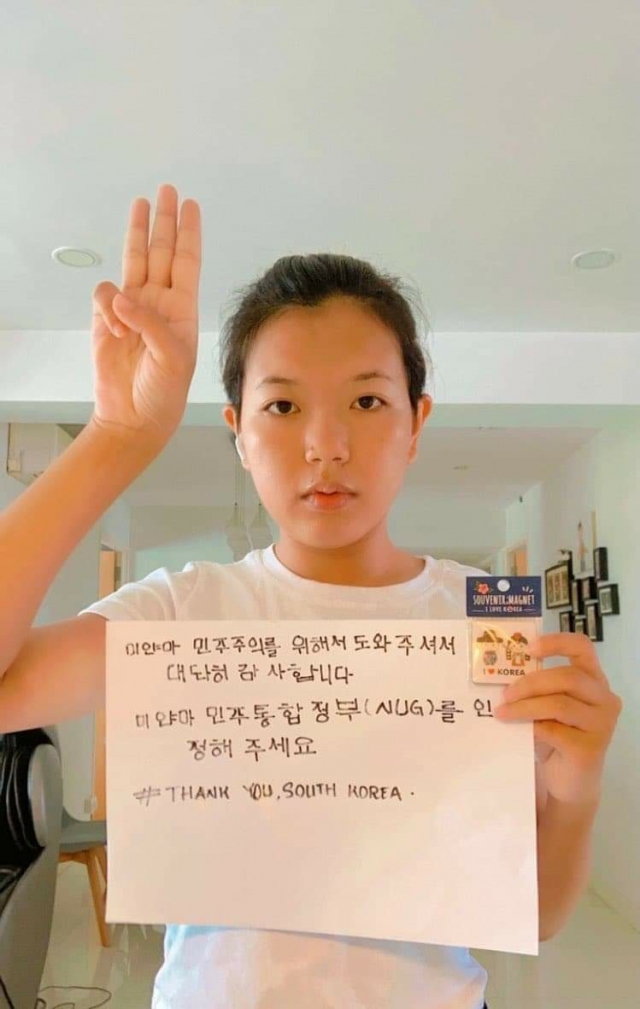 미얀마 민주주의를 위해서 도와 주셔서
대단히 감사합니다
미얀마 민주통합정부(NUG)를 인
정해 주세요
#THANK YOU, SOUTH KOREA.
SOUVENIR.MAGNET
I LOVE KOREA
I ♥ KOREA